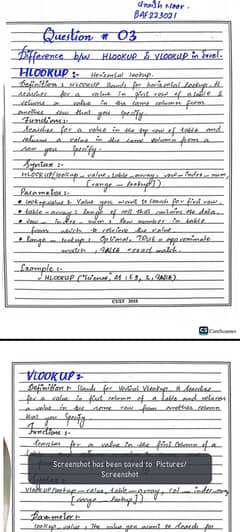 Unaish Noor
BAF223021
Question # 03
Difference b/w HLOOKUP & VLOOKUP in Excel.
HLOOKUP :- Horizontal lookup.
Definition : HLOOKUP stands for horizontal lookup. It
searches for a value in first row of a table &
returns a value in the same column from
another row that you specify.
Functions:-
Searches for a value in the top row of table and
return a value in the same column from a
row you specify.
Syntax :-
HLOOKUP(lookup_value, table_array, row_index_num,
[range_lookup])
Parameters :-
• lookup value : Value you want to search for first row.
• table_array : Range of cell that contains the data.
• row_index_num : Row number in table
from which to retrieve the value.
• Range_lookup : Optional, TRUE = approximate
match, FALSE = exact match.
Example :-
HLOOKUP ("Science", A1 : 2, FALSE)
CUST 2025
CS CamScanner
VLOOKUP :-
Definition : Stands for Vertical Vlookup. It searches
for a value in first column of a table and returns
a value in the same row from another column
that you specify.
Functions :-
Searches for a value in the first column of a
Screenshot has been saved to Pictures/
Screenshot
VLOOKUP(lookup_value, table_array, col_index_num
[range_lookup])
Parameter :-
lookup_value : The value you want to search for